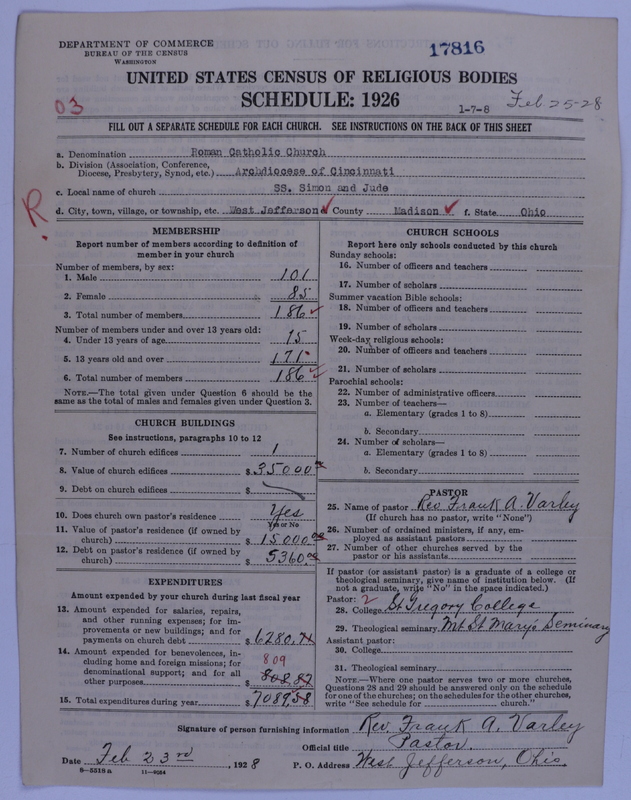 DEPARTMENT OF COMMERCE
BUREAU OF THE CENSUS
WASHINGTON
17816
UNITED STATES CENSUS OF RELIGIOUS BODIES
SCHEDULE: 1926
03
1-7-8
Feb 25-28
FILL OUT A SEPARATE SCHEDULE FOR EACH CHURCH. SEE INSTRUCTIONS ON THE BACK OF THIS SHEET
a. Denomination Roman Catholic Church
b. Division (Association, Conference,
Diocese, Presbytery, Synod, etc.) Archdiocese of Cincinnati
c. Local name of church SS. Simon and Jude
R.
d. City, town, village, or township, etc. West Jefferson e. County Madison f. State Ohio
MEMBERSHIP
Report number of members according to definition of
member in your church
Number of members, by sex:
1. Male 101
2. Female 85
3. Total number of members 186
Number of members under and over 13 years old:
4. Under 13 years of age 15
5. 13 years old and over 171
6. Total number of members 186
NOTE.—The total given under Question 6 should be the
same as the total of males and females given under Question 3.
CHURCH BUILDINGS
See instructions, paragraphs 10 to 12
7. Number of church edifices 1
8. Value of church edifices $35000.00
9. Debt on church edifices $
10. Does church own pastor's residence Yes
Yes or No
11. Value of pastor's residence (if owned by
church) $15000.00
12. Debt on pastor's residence (if owned by
church) $5360.00
EXPENDITURES
Amount expended by your church during last fiscal year
13. Amount expended for salaries, repairs,
and other running expenses; for im-
provements or new buildings; and for
payments on church debt $6280.71
14. Amount expended for benevolences, in-
cluding home and foreign missions; for
denominational support; and for all
other purposes 809
$808.87
15. Total expenditures during year $7089.58
CHURCH SCHOOLS
Report here only schools conducted by this church
Sunday schools:
16. Number of officers and teachers
17. Number of scholars
Summer vacation Bible schools:
18. Number of officers and teachers
19. Number of scholars
Week-day religious schools:
20. Number of officers and teachers
21. Number of scholars
Parochial schools:
22. Number of administrative officers
23. Number of teachers—
a. Elementary (grades 1 to 8)
b. Secondary
24. Number of scholars—
a. Elementary (grades 1 to 8)
b. Secondary
PASTOR
25. Name of pastor Rev. Frank A. Varley
(If church has no pastor, write "None")
26. Number of ordained ministers, if any, em-
ployed as assistant pastors
27. Number of other churches served by the
pastor or his assistants
If pastor (or assistant pastor) is a graduate of a college or
theological seminary, give name of institution below. (If
not a graduate, write "No" in the space indicated.)
Pastor: 2
28. College St Gregory College
29. Theological seminary Mt St Mary's Seminary
Assistant pastor:
30. College
31. Theological seminary
NOTE.—Where one pastor serves two or more churches,
Questions 28 and 29 should be answered only on the schedule
for one of the churches; on the schedules for the other churches,
write "See schedule for church."
Signature of person furnishing information Rev. Frank A. Varley
Official title Pastor.
Date Feb 23rd, 1928
P. O. Address West Jefferson, Ohio.
8-5518a 11-9264